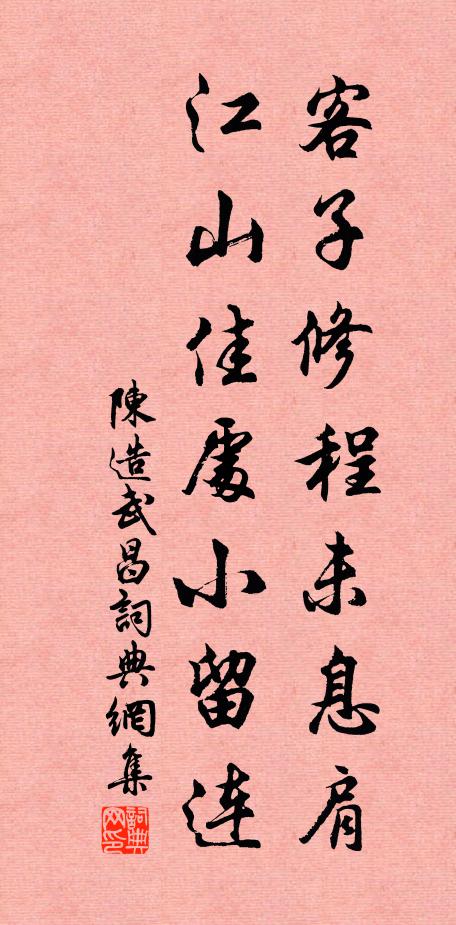 客子修程未息肩
江山佳處小留連
陳造武昌詞典網集
詞典网印